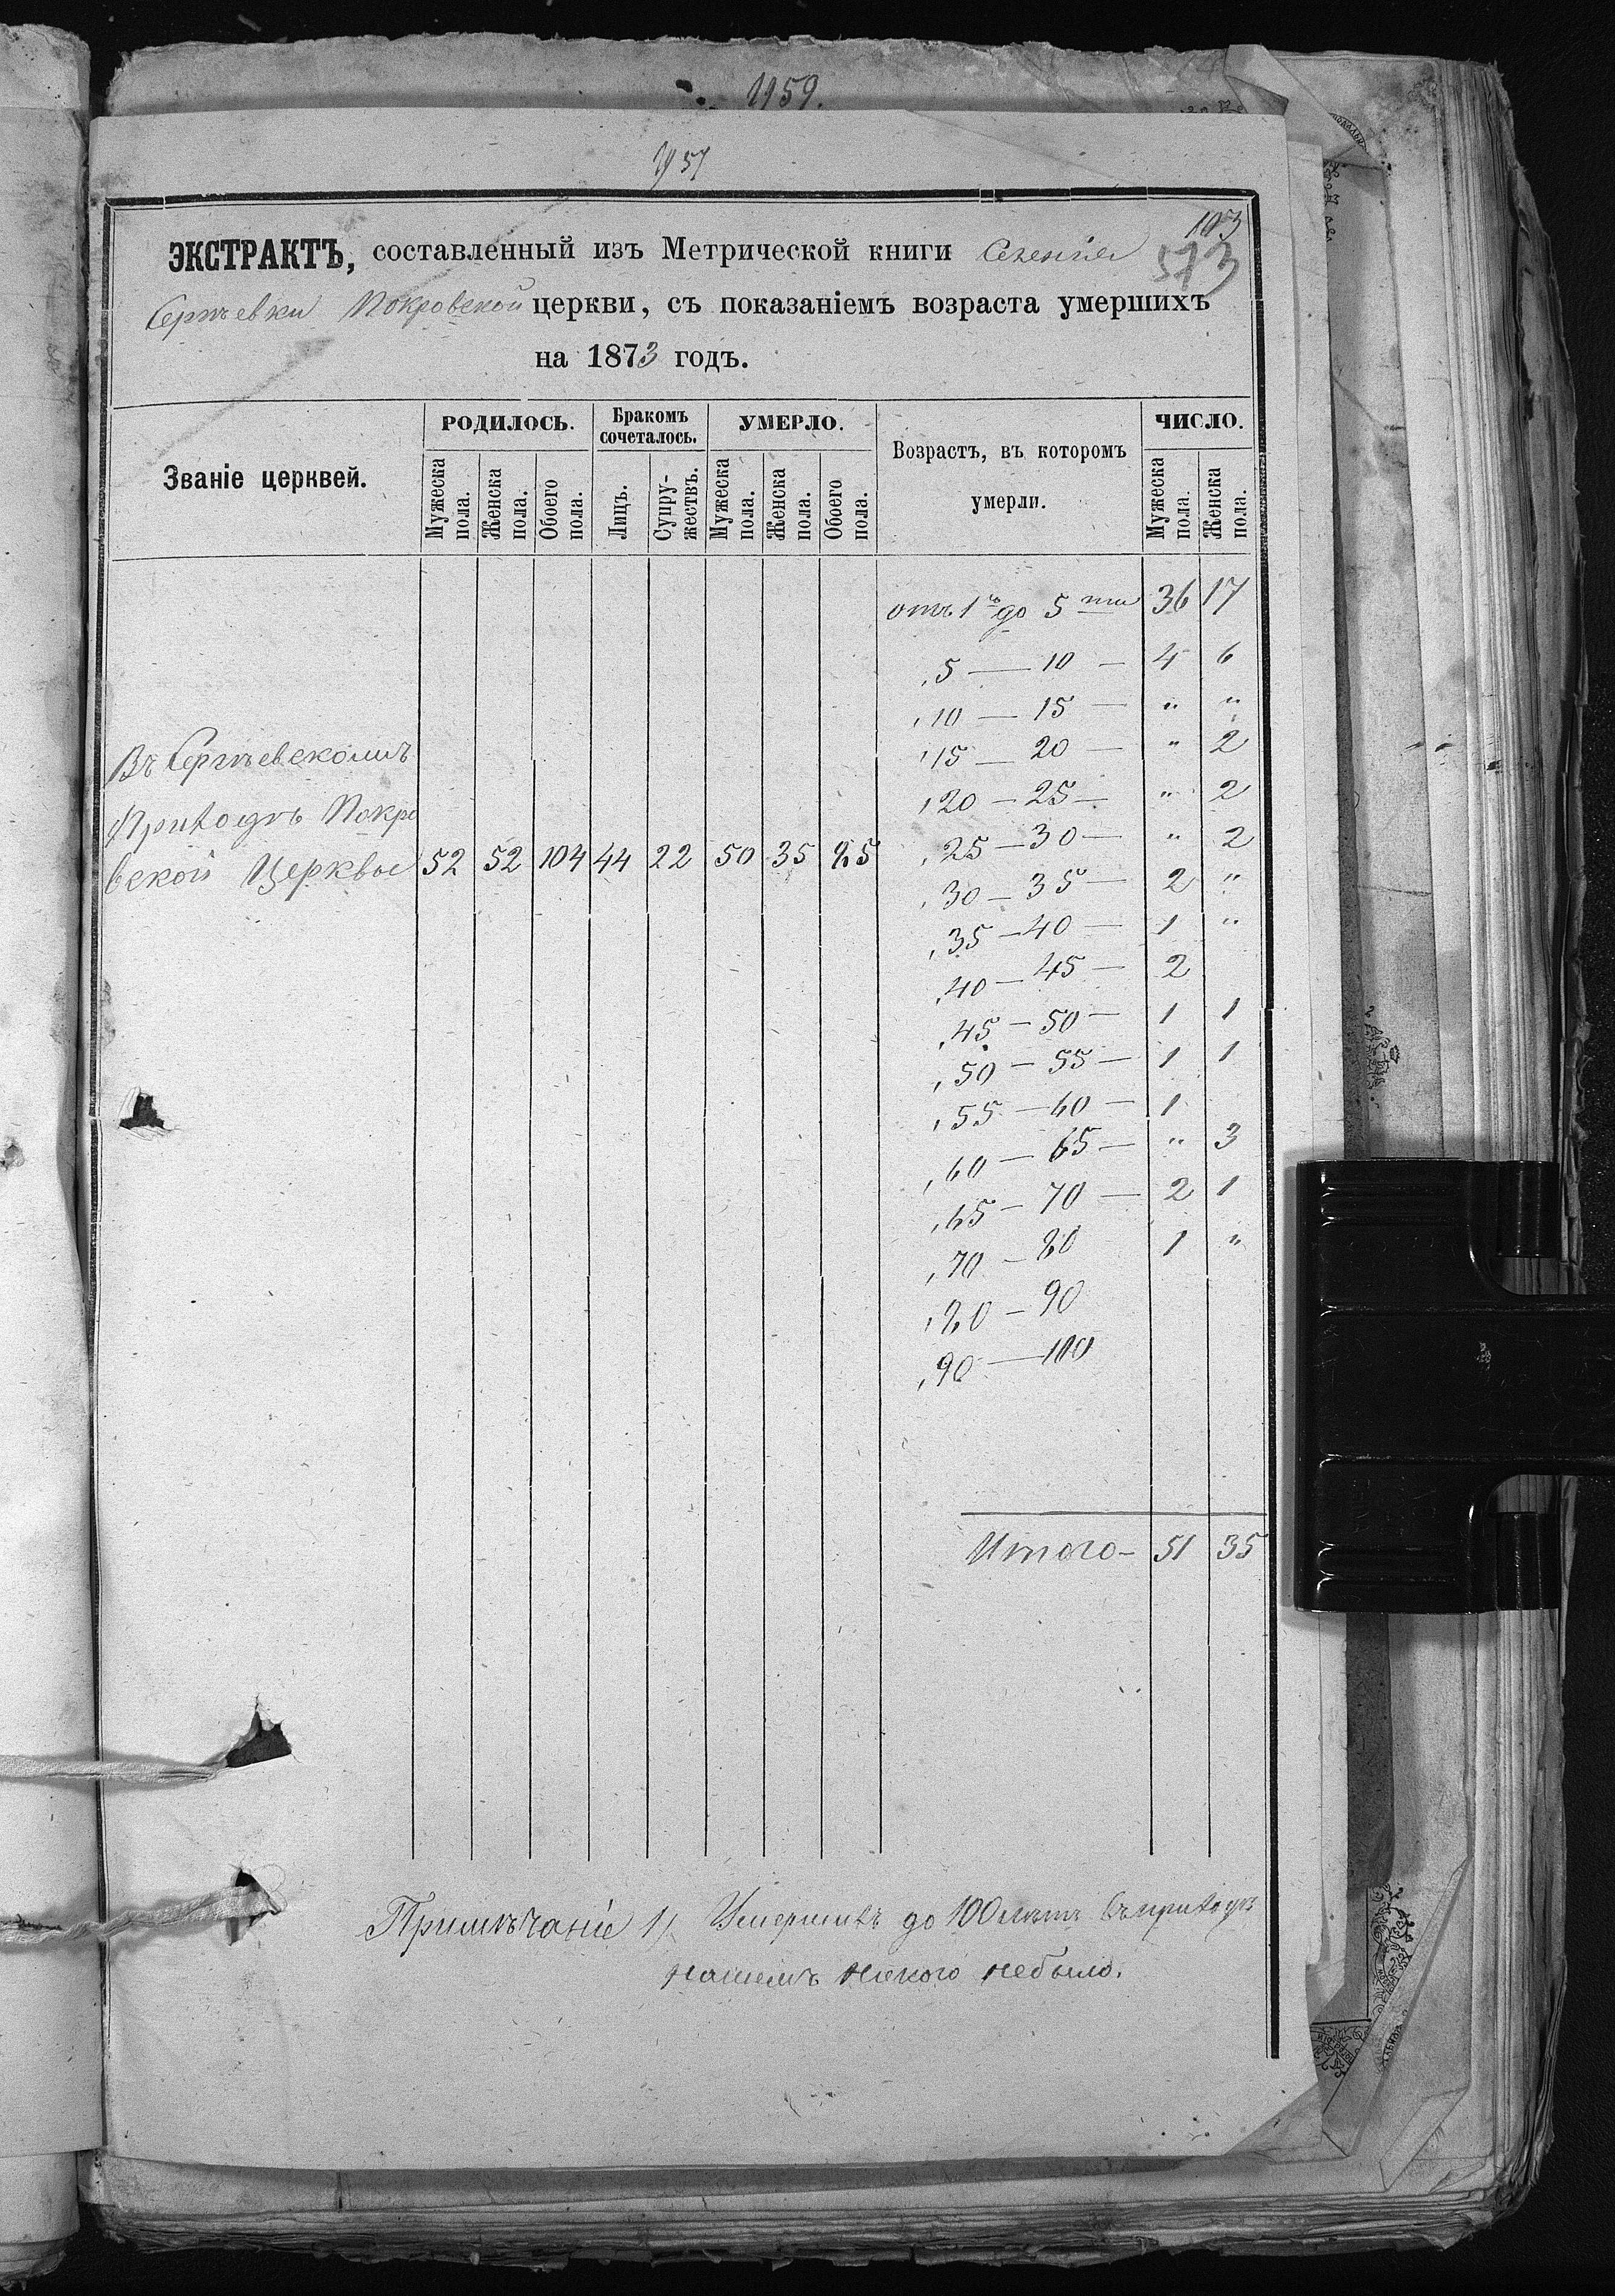 1159.
1157
103
573
ЭКСТРАКТЪ, составленный изъ Метрической книги Селенія
Сергѣевки Покровской церкви, съ показаніемъ возраста умершихъ
на 1873 годъ.
Званіе церквей.
РОДИЛОСЬ.
Бракомъ сочеталось.
УМЕРЛО.
Возрастъ, въ которомъ умерли.
ЧИСЛО.
Мужеска пола.
Женска пола.
Обоего пола.
Лицъ.
Супружествъ.
Мужеска пола.
Женска пола.
Обоего пола.
Мужеска пола.
Женска пола.
отъ 1го до 5ти 36 17
„ 5 — 10 — 4 6
„ 10 — 15 — „ „
„ 15 — 20 — „ 2
„ 20 — 25 — „ 2
„ 25 — 30 — „ 2
„ 30 — 35 — 2 „
„ 35 — 40 — 1 „
„ 40 — 45 — 2
„ 45 — 50 — 1 1
„ 50 — 55 — 1 1
„ 55 — 60 — 1
„ 60 — 65 — „ 3
„ 65 — 70 — 2 1
„ 70 — 80 1 „
„ 80 — 90
„ 90 — 100
Въ Сергѣевскомъ
Приходѣ Покро
вской Церквы 52 52 104 44 22 50 35 85
Итого — 51 35
Примѣчаніе 1/ Умершихъ до 100 лѣтъ въ приходѣ
нашемъ никого небыло.